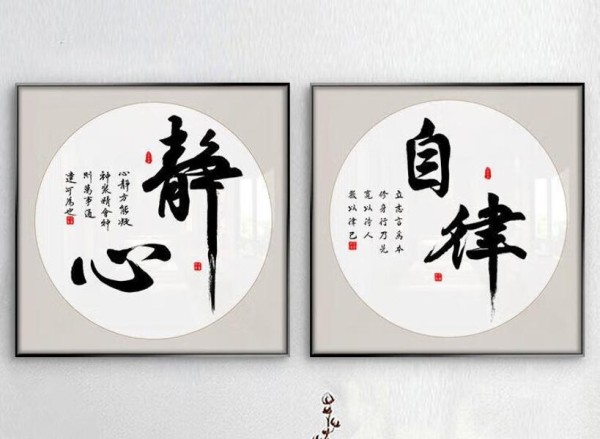 静心
心静方能凝
神聚精會神
则萬事通
達可為也
自律
立志言為本
修身行乃先
寬以待人
嚴以律己